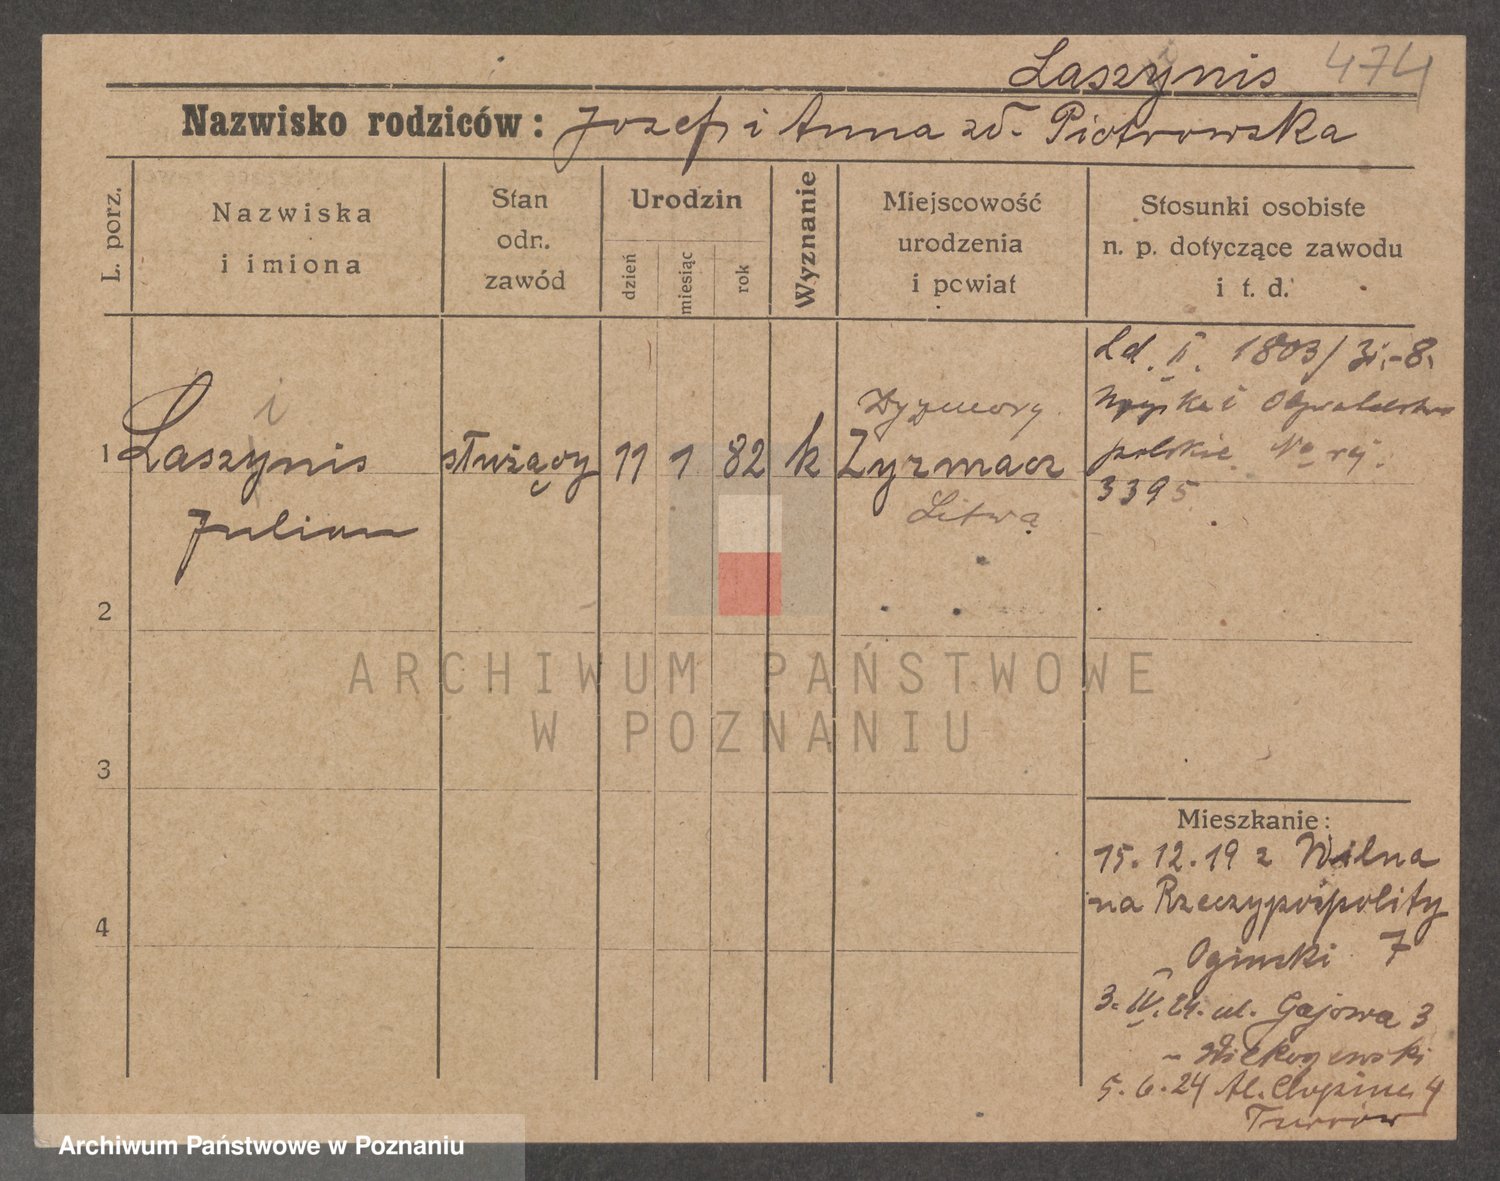 Laszynis 474
i
Nazwisko rodziców: Jozef i Anna zd. Piotrowska
L. porz.
Nazwiska
i imiona
Stan
odn.
zawód
Urodzin
dzień
miesiąc
rok
Wyznanie
Miejscowość
urodzenia
i powiat
Stosunki osobiste
n. p. dotyczące zawodu
i t. d.
1
i
Laszynis
Julian
służący
11
1
82
k
Dyzmory
Zyzmacz
Litwa
Ld. II. 1803/
polskie No rej.
3395
2
3
4
Mieszkanie:
15.12.19 z Wilna
na Rzeczypospolity
Oginski 7
3.IV.24. ul. Gajowa 3
5.6.24 Al. Chopina 4
ARCHIWUM PAŃSTWOWE
W POZNANIU
Archiwum Państwowe w Poznaniu